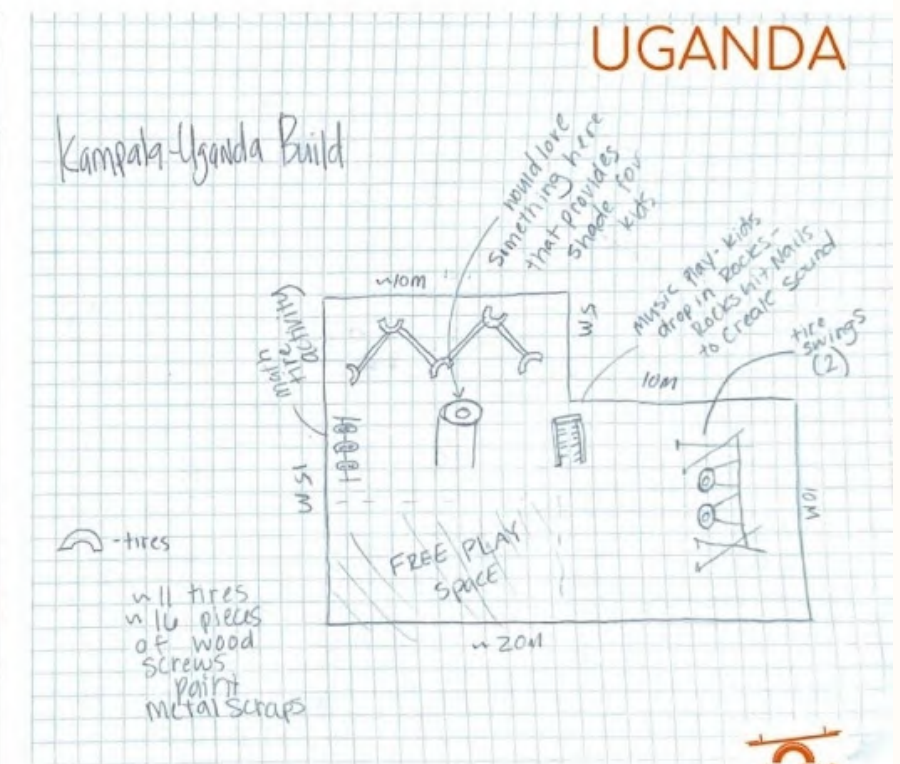 UGANDA
Kampala-Uganda Build
would love
something here
that provides
shade for
kids
music play-kids
drop in Rocks-
Rocks hit Nails
to Create sound
tire
swings
(2)
~10M
5M
10M
math
tire
activity
15M
10M
FREE PLAY
Space
-tires
~11 tires
~16 pieces
of wood
screws
paint
metal scraps
~20M